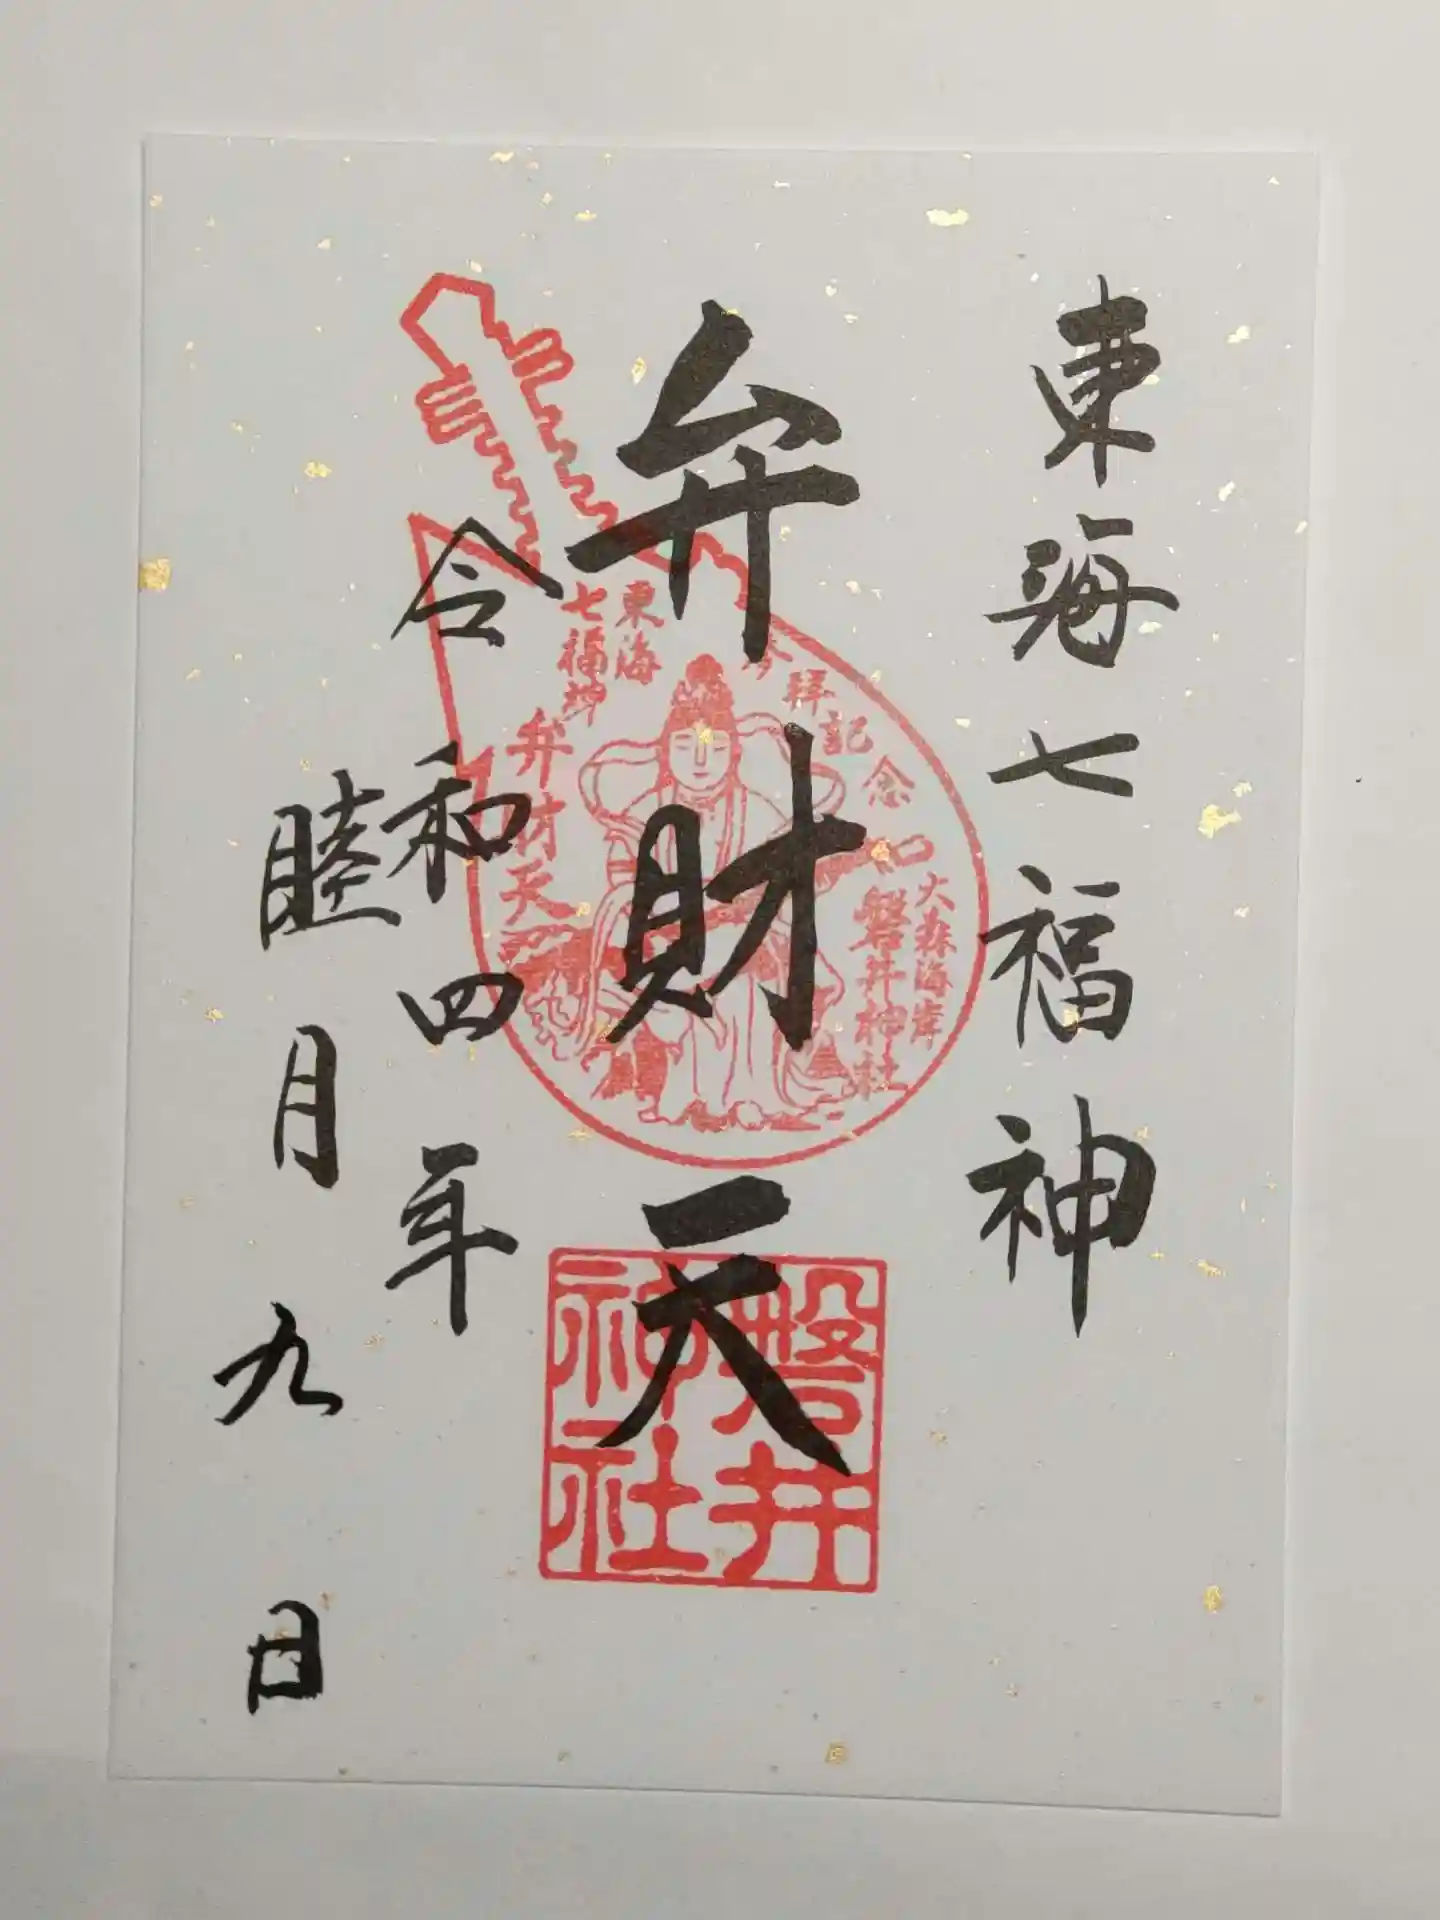 東海七福神
弁財天
令和四年
睦月九日
参拝記念
東海
七福神
弁財天
大森海岸
磐井神社
磐井
神社